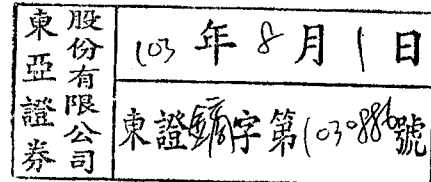 東亞證券
股份有限公司
103年8月1日
東證字第1030886號